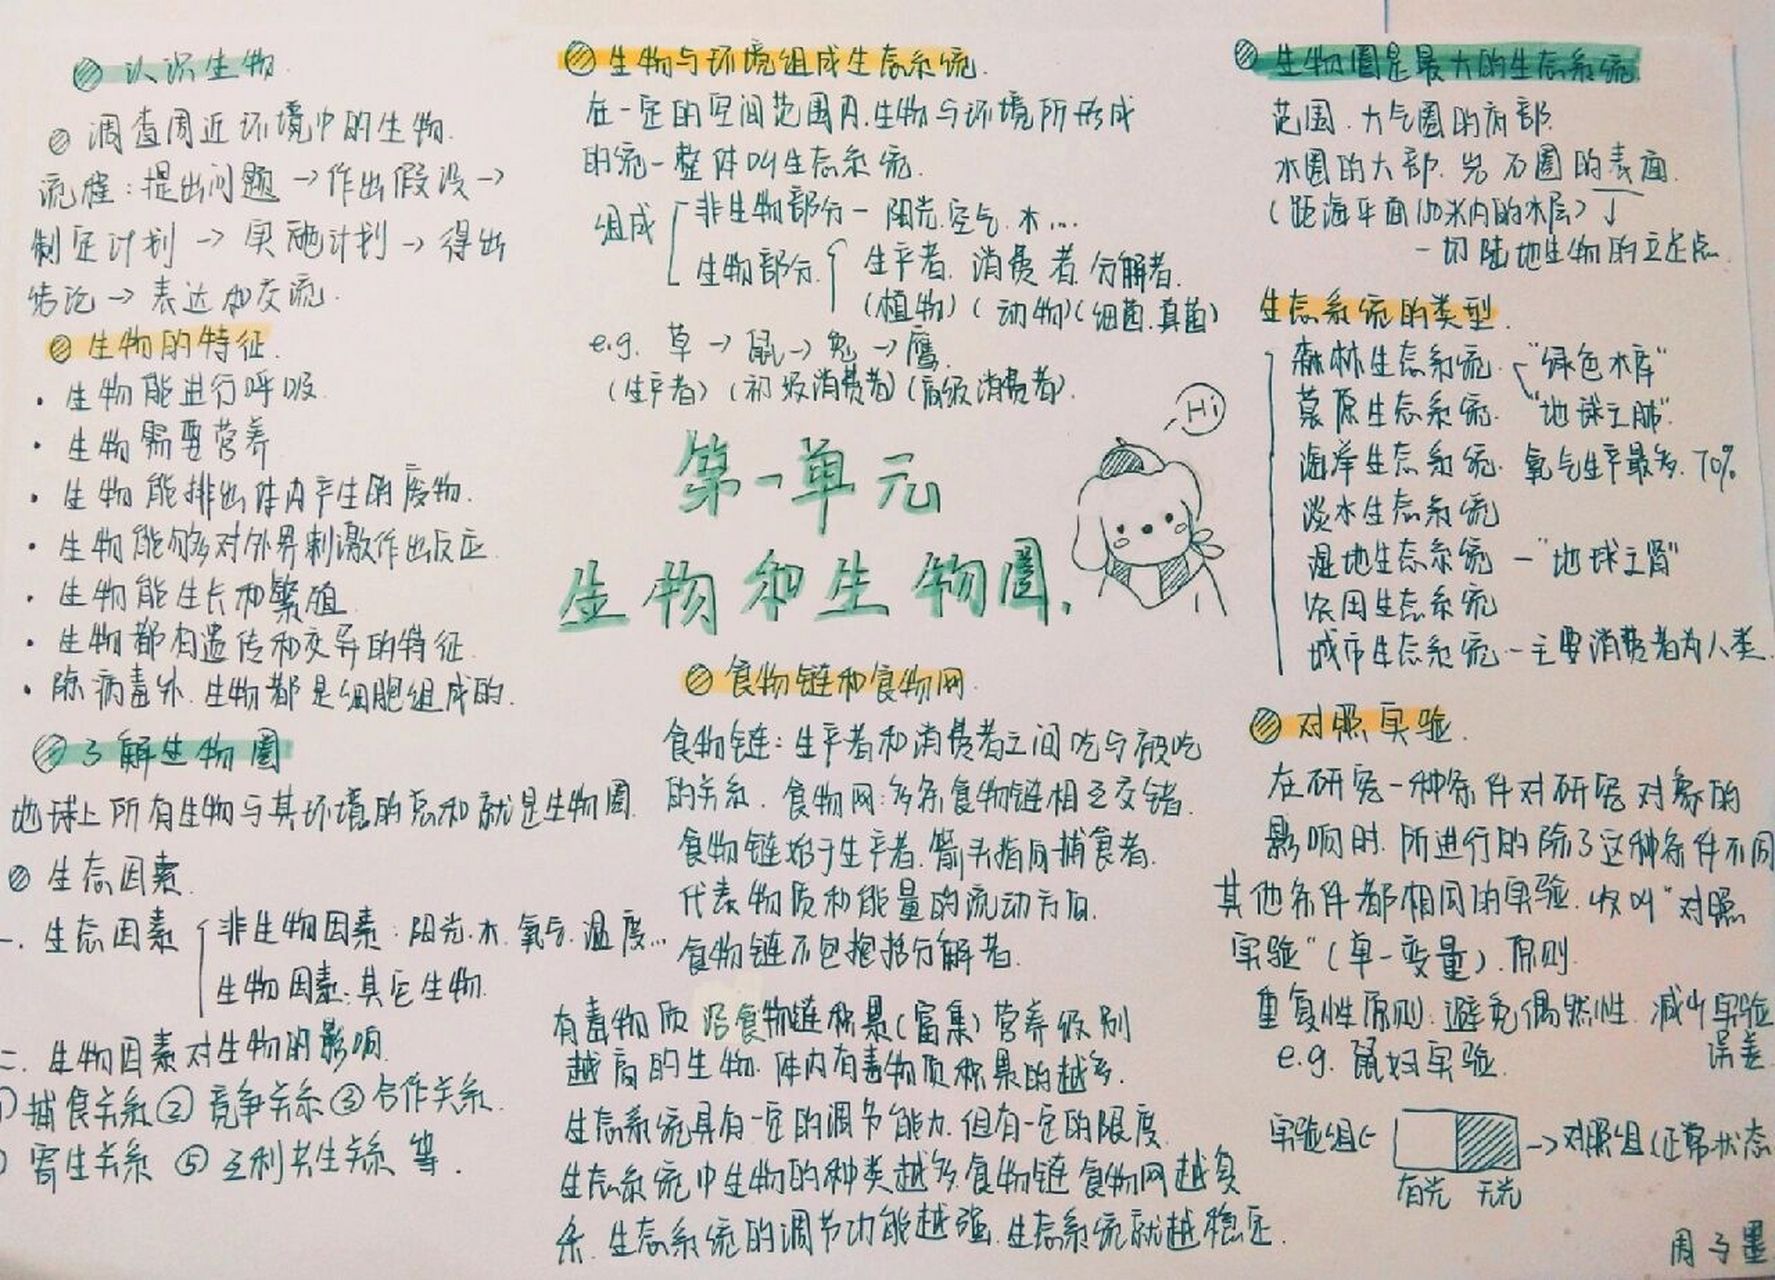 认识生物
调查周近环境中的生物.
流程:提出问题→作出假设→
制定计划→实施计划→得出
结论→表达和交流.
生物的特征.
· 生物能进行呼吸.
· 生物需要营养
· 生物能排出体内产生的废物.
· 生物能够对外界刺激作出反应
· 生物能生长和繁殖.
· 生物都有遗传和变异的特征.
· 除病毒外.生物都是细胞组成的.
了解生物圈
地球上所有生物与其环境的总和就是生物圈.
生态因素.
一. 生态因素
非生物因素:阳光.水.氧气.温度...
生物因素:其它生物.
二. 生物因素对生物的影响.
①捕食关系②竞争关系③合作关系.
寄生关系 ⑤互利共生关系 等.
生物与环境组成生态系统.
在一定的空间范围内.生物与环境所形成
的统一整体叫生态系统.
组成
非生物部分- 阳光.空气.水...
生物部分.
生产者. 消费者.分解者.
(植物)(动物)(细菌.真菌)
e.g. 草→鼠→兔→鹰.
(生产者)(初级消费者)(高级消费者).
Hi
第一单元
生物和生物圈.
食物链和食物网.
食物链:生产者和消费者之间吃与被吃
的关系. 食物网:多条食物链相互交错.
食物链始于生产者.箭头指向捕食者.
代表物质和能量的流动方向.
食物链不包括分解者.
有毒物质沿食物链积累(富集)营养级别
越高的生物.体内有毒物质积累的越多.
生态系统具有一定的调节能力.但有一定的限度.
生态系统中生物的种类越多.食物链食物网越复
杂.生态系统的调节功能越强.生态系统就越稳定.
生物圈是最大的生态系统
范围.大气圈的底部.
水圈的大部.岩石圈的表面.
(距海平面150米内的水层)↓
一切陆地生物的立足点.
生态系统的类型.
森林生态系统. "绿色水库"
草原生态系统. "地球之肺".
海洋生态系统. 氧气生产最多.70%
淡水生态系统
湿地生态系统 -"地球之肾"
农田生态系统
城市生态系统-主要消费者为人类.
对照实验.
在研究一种条件对研究对象的
影响时.所进行的除了这种条件不同
其他条件都相同的实验.收叫"对照
实验"(单一变量).原则.
重复性原则:避免偶然性.减少实验
误差.
e.g. 鼠妇实验.
实验组← →对照组(正常状态
有光 无光
周子墨